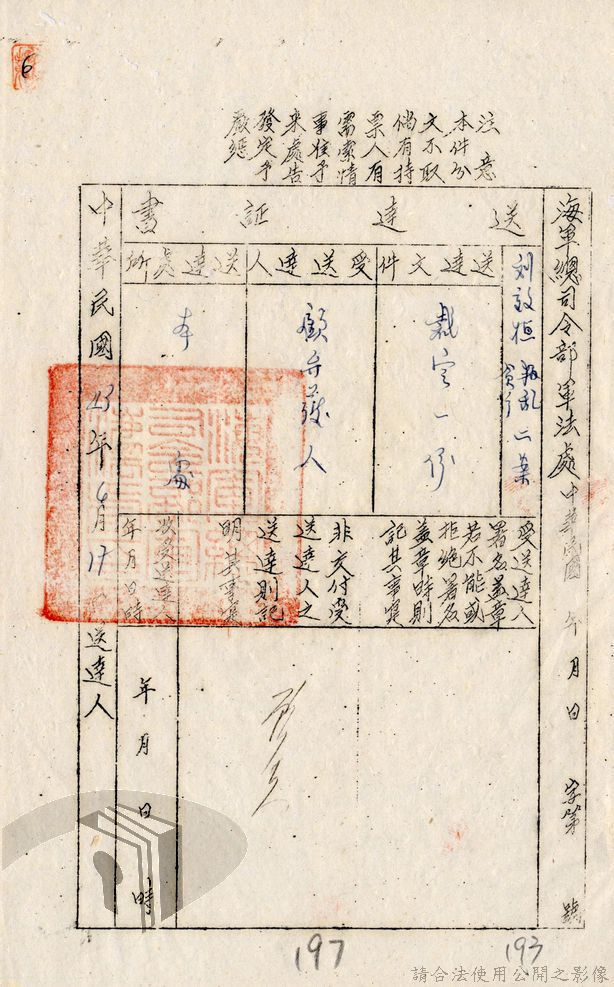 6
注意
本件分
文不取
倘有持
票人有
需索情
事准予
来處告
發定予
嚴懲
海軍總司令部軍法處中華民國 年 月 日 字第 號
送達証書
刘 叛乱 二案
送達文件
裁定一份
受送達人
顧 人
送達處所
本處
受送達人
署名蓋章
若不能或
拒絕署名
蓋章時則
記其事實
非交付受
送達人之
送達則記
明其事實
收受送達人
年月日時
年 月 日 時
中華民國43年6月17 送達人
197
193
請合法使用公開之影像